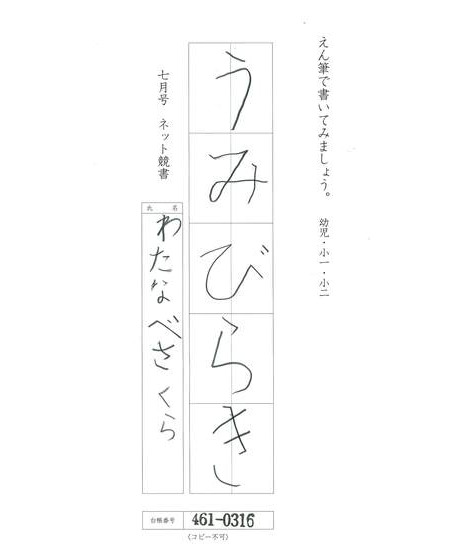 えん筆で書いてみましょう。 幼児・小一・小二
うみびらき
七月号 ネット競書
氏名
わたなべさくら
台帳番号 461-0316
(コピー不可)